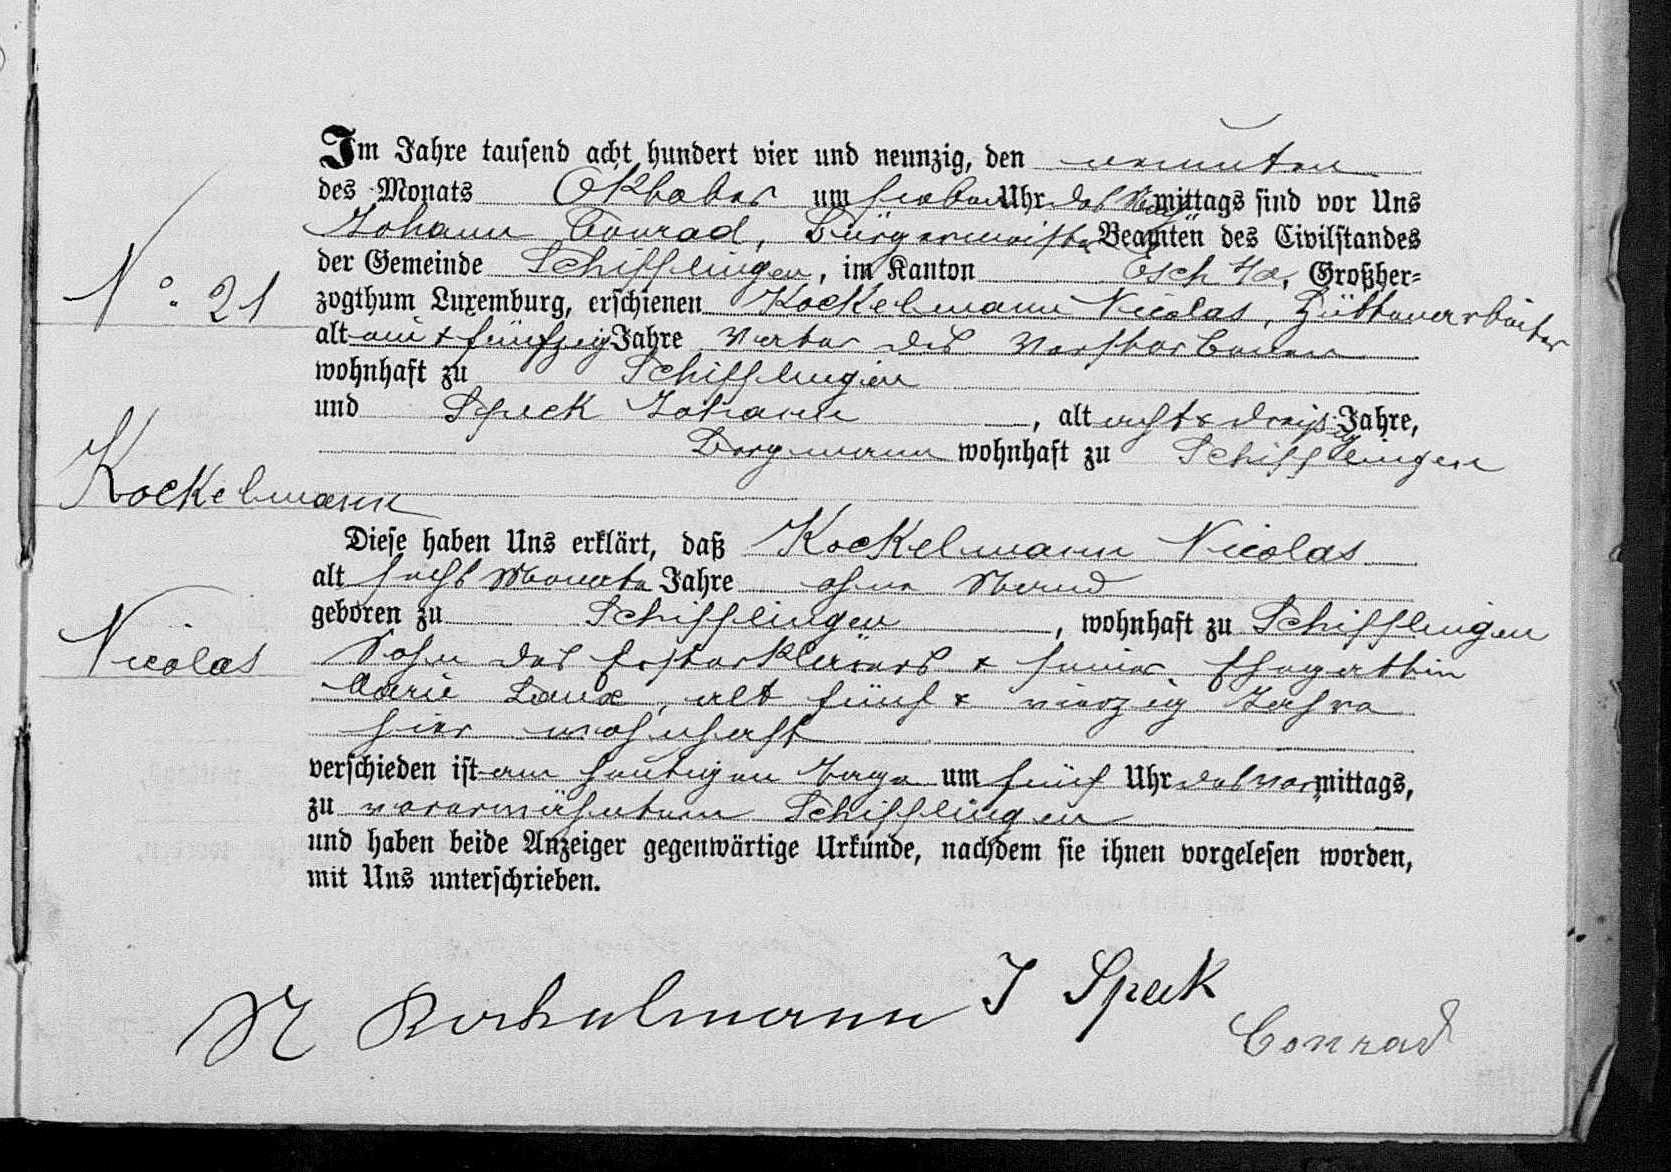 Im Jahre tausend acht hundert vier und neunzig, den neunten
des Monats Oktober um sieben Uhr des Vormittags sind vor Uns
Johann Conrad, Bürgermeister Beamten des Civilstandes
der Gemeinde Schifflingen, im Kanton Esch a/A, Großher-
N° 21
zogthum Luxemburg, erschienen Kockelmann Nicolas, Hüttenarbeiter
alt ein & fünfzig Jahre Vater des Verstorbenen
wohnhaft zu Schifflingen
und Speck Johann, alt acht & dreißig Jahre,
Bergmann wohnhaft zu Schifflingen
Kockelmann
Diese haben Uns erklärt, daß Kockelmann Nicolas
alt sechs Monate Jahre ohne Stand
geboren zu Schifflingen, wohnhaft zu Schifflingen
Nicolas
Sohn des Ersterklärers & seiner Ehegattin
Marie Laux, alt fünf & vierzig Jahre
hier wohnhaft
verschieden ist am heutigen Tage um fünf Uhr des vormittags,
zu vorerwähntem Schifflingen
und haben beide Anzeiger gegenwärtige Urkunde, nachdem sie ihnen vorgelesen worden,
mit Uns unterschrieben.
N Kockelmann J Speck
Conrad